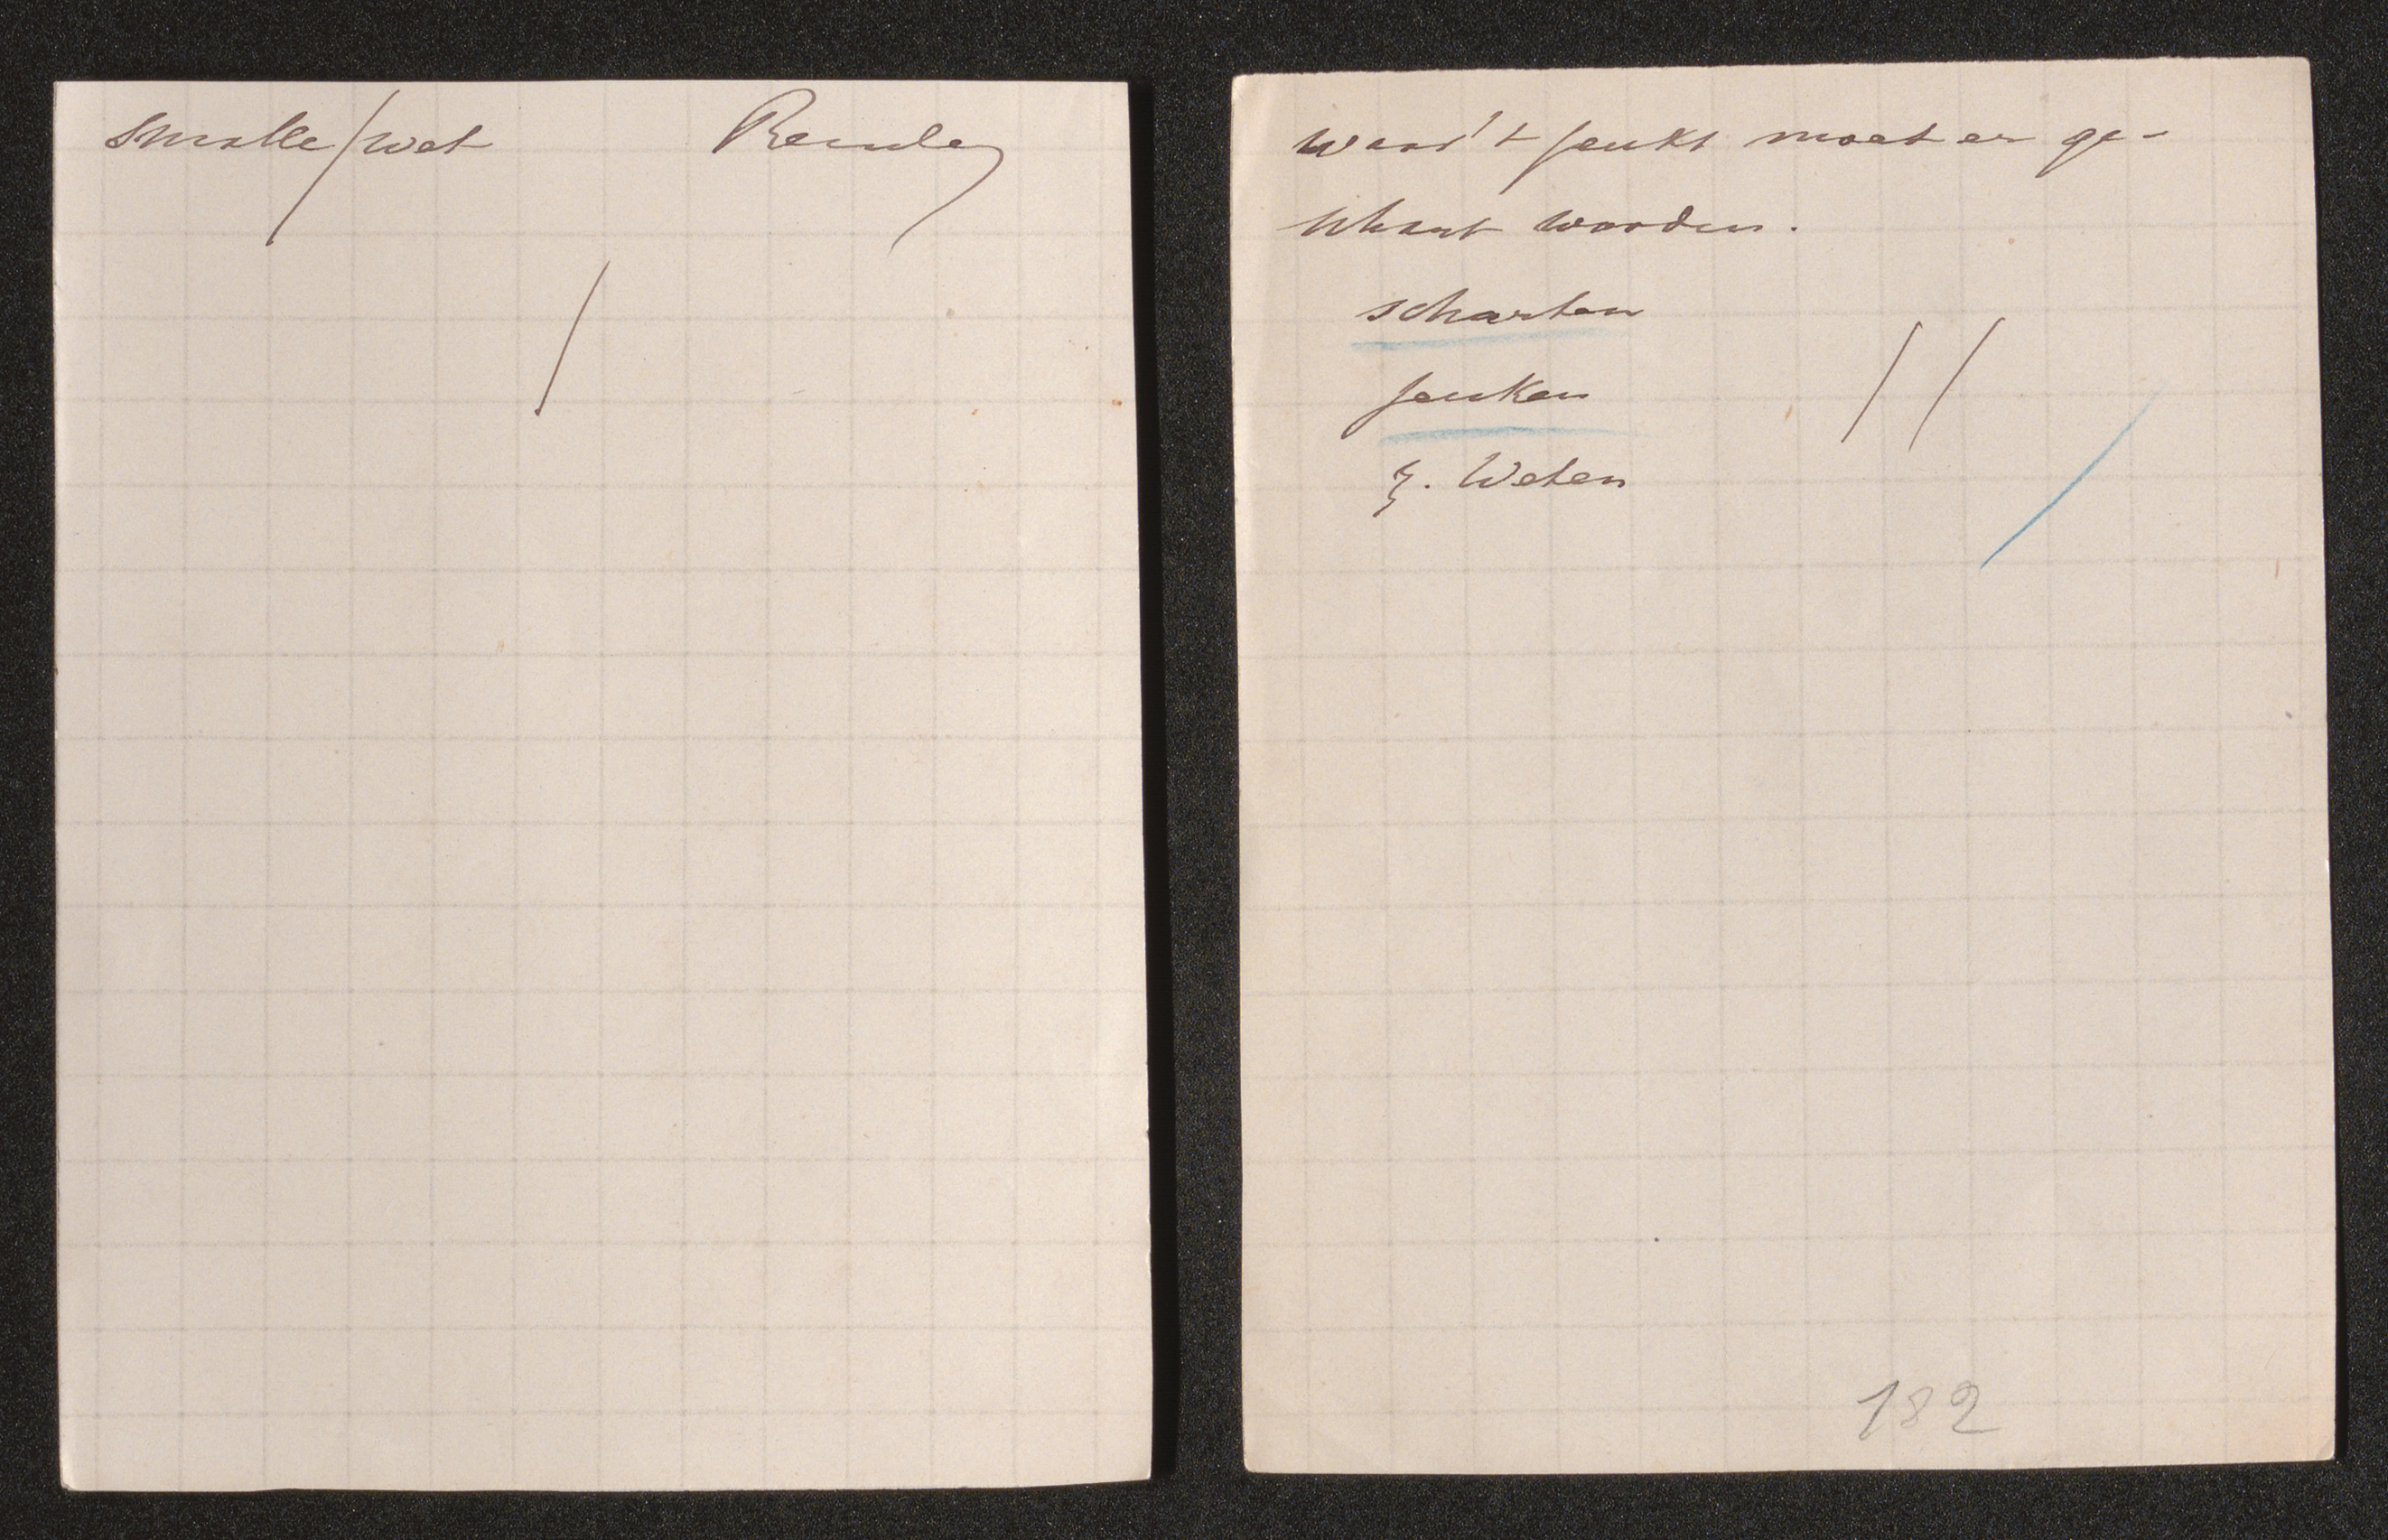 smalle/wet
waar 't jeukt moet er ge-
schart worden.
scharten
jeuken
z. Weten
182